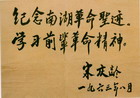 纪念南湖革命圣迹，
学习前辈革命精神。
宋庆龄
一九六三年八月